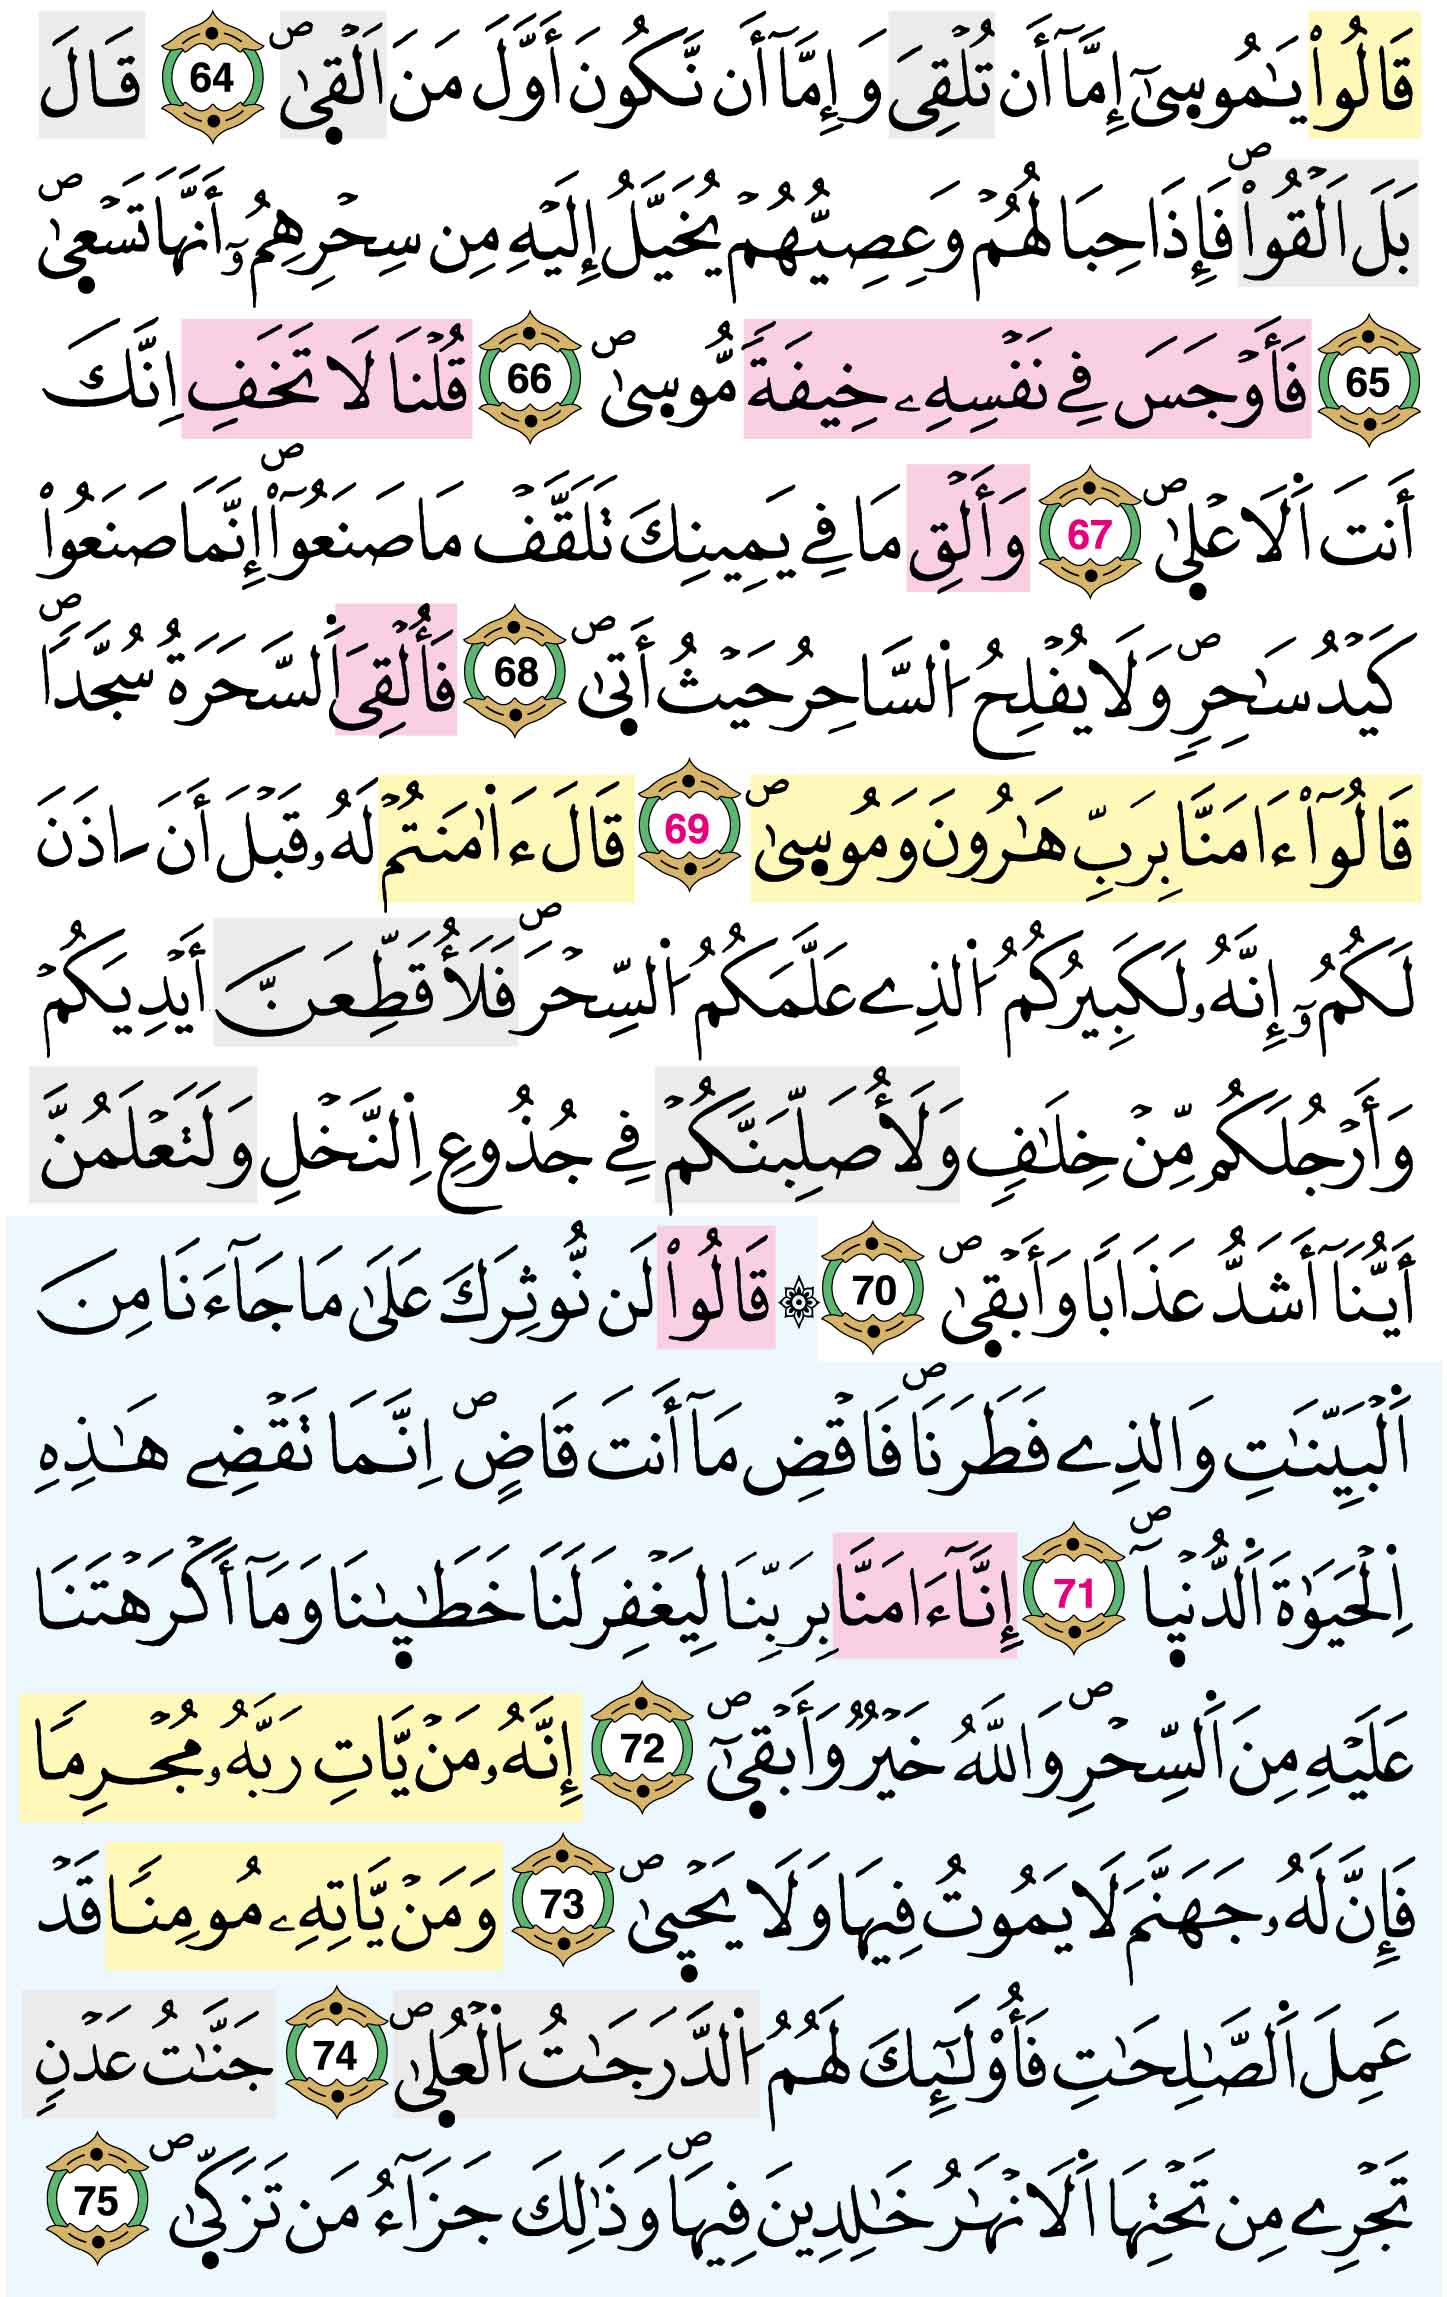 قَالُواْ يَٰمُوسَىٰٓ إِمَّآ أَن تُلْقِيَ وَإِمَّآ أَن نَّكُونَ أَوَّلَ مَنَ اَلْقَىٰۖ 64 قَالَ
بَلَ اَلْقُواْۖ فَإِذَا حِبَالُهُمْ وَعِصِيُّهُمْ يُخَيَّلُ إِلَيْهِ مِن سِحْرِهِمُۥٓ أَنَّهَا تَسْعَىٰۖ
65 فَأَوْجَسَ فِي نَفْسِهِۦ خِيفَةٗ مُّوسَىٰۖ 66 قُلْنَا لَا تَخَفِ اِنَّكَ
أَنتَ اَلَاعْلَىٰۖ 67 وَأَلْقِ مَا فِي يَمِينِكَ تَلَقَّفْ مَا صَنَعُوٓاْۖ إِنَّمَا صَنَعُواْ
كَيْدُ سَٰحِرٖۖ وَلَا يُفْلِحُ اُلسَّاحِرُ حَيْثُ أَتَىٰۖ 68 فَأُلْقِيَ اَلسَّحَرَةُ سُجَّداٗۖ
قَالُوٓاْ ءَامَنَّا بِرَبِّ هَٰرُونَ وَمُوسَىٰۖ 69 قَالَ ءَاٰمَنتُمْ لَهُۥ قَبْلَ أَنَ اٰذَنَ
لَكُمُۥٓ إِنَّهُۥ لَكَبِيرُكُمُ اُلذِے عَلَّمَكُمُ اُلسِّحْرَۖ فَلَأُقَطِّعَنَّ أَيْدِيَكُمْ
وَأَرْجُلَكُم مِّنْ خِلَٰفٖ وَلَأُصَلِّبَنَّكُمْ فِي جُذُوعِ اِلنَّخْلِ وَلَتَعْلَمُنَّ
أَيُّنَآ أَشَدُّ عَذَاباٗ وَأَبْقَىٰۖ 70 ۞ قَالُواْ لَن نُّوثِرَكَ عَلَىٰ مَا جَآءَنَا مِنَ
اَلْبَيِّنَٰتِ وَالذِے فَطَرَنَاۖ فَاقْضِ مَآ أَنتَ قَاضٍۖ اِنَّمَا تَقْضِے هَٰذِهِ
اِلْحَيَوٰةَ اَلدُّنْيَآۖ 71 إِنَّآ ءَامَنَّا بِرَبِّنَا لِيَغْفِرَ لَنَا خَطَٰيَٰنَا وَمَآ أَكْرَهْتَنَا
عَلَيْهِ مِنَ اَلسِّحْرِۖ وَاللَّهُ خَيْرٞ وَأَبْقَىٰٓۖ 72 إِنَّهُۥ مَنْ يَّاتِ رَبَّهُۥ مُجْرِماٗ
فَإِنَّ لَهُۥ جَهَنَّمَ لَا يَمُوتُ فِيهَا وَلَا يَحْيَىٰۖ 73 وَمَنْ يَّاتِهِۦ مُومِناٗ قَدْ
عَمِلَ اَلصَّٰلِحَٰتِ فَأُوْلَٰٓئِكَ لَهُمُ اُلدَّرَجَٰتُ اُلْعُلَىٰۖ 74 جَنَّٰتُ عَدْنٖ
تَجْرِے مِن تَحْتِهَا اَلَانْهَٰرُ خَٰلِدِينَ فِيهَاۖ وَذَٰلِكَ جَزَآءُ مَن تَزَكَّىٰۖ 75